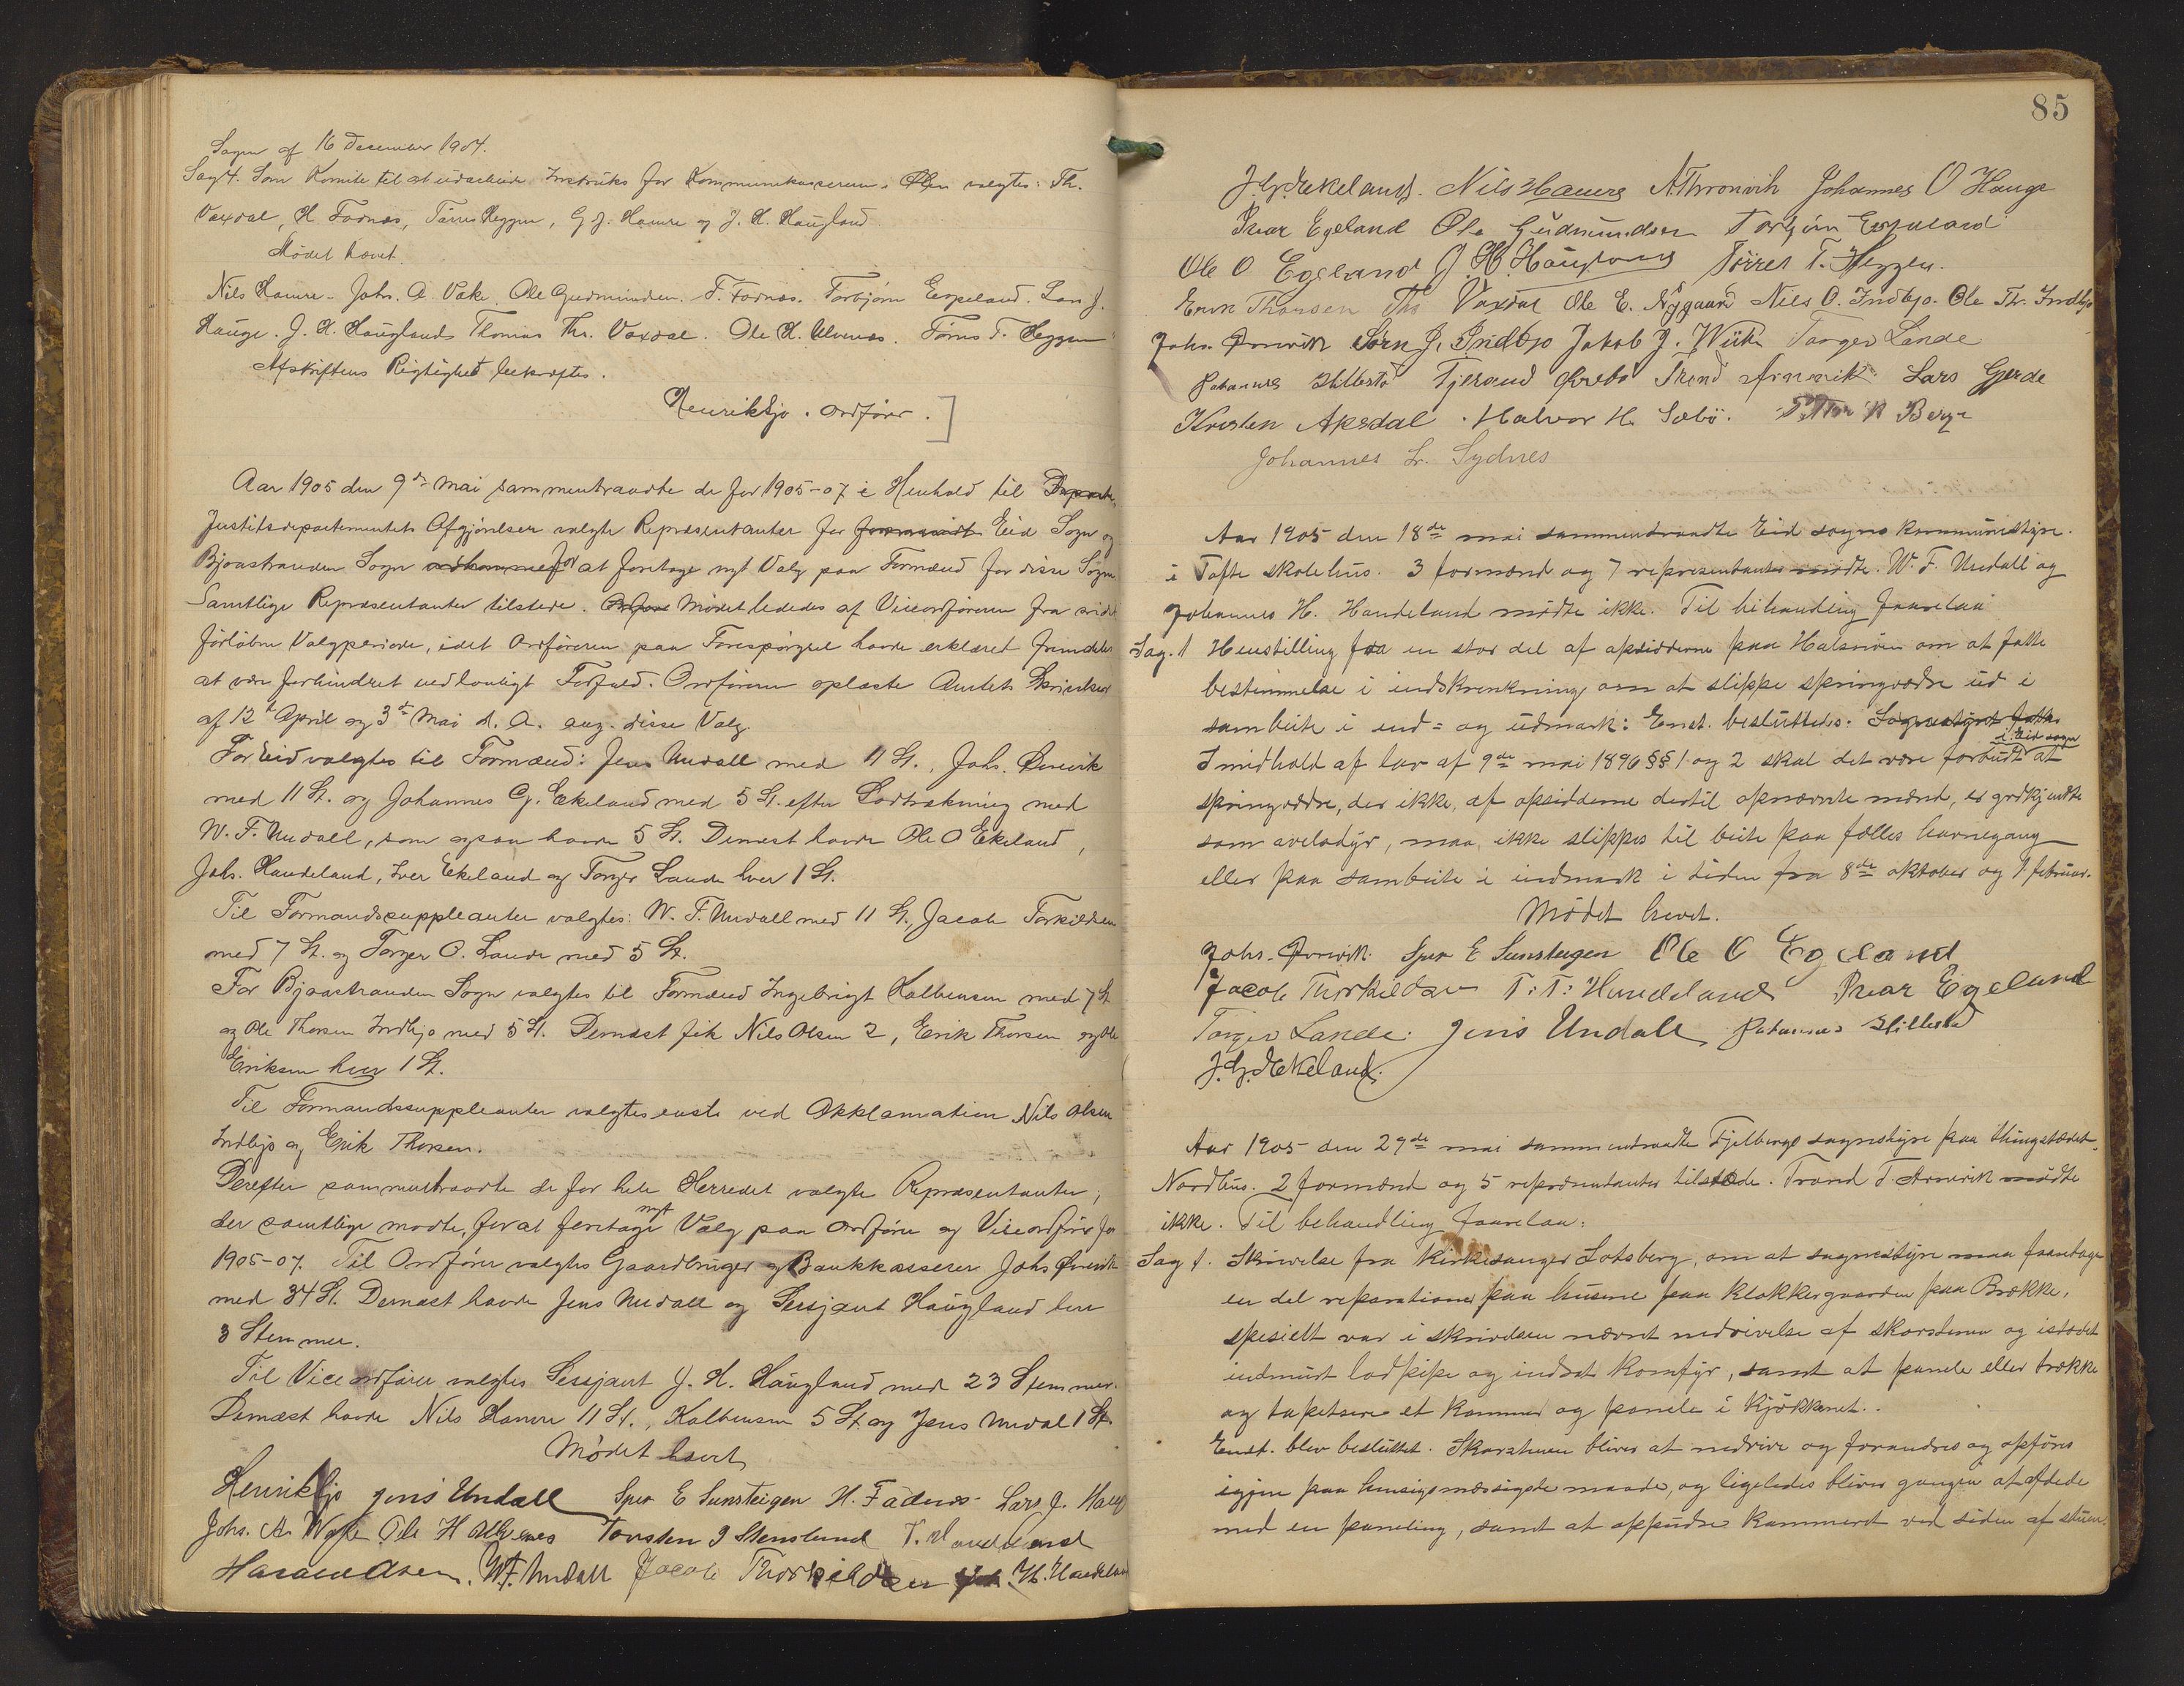 Sagen af 16 December 1904.
Sag 4. Som Komite til at udarbeide Instruks for Kommunekassereren i Ølen valgtes: Th.
Vaxdal, H. Fadnæs, Tørres Heggen, G J. Hamre og J. H. Haugland
Mødet hævet.
Nils Hamre. Johs. A. Vake. Ole Gudmundsen. H. Fadnæs. Torbjørn Espeland. Lars J.
Hauge. J. H. Haugland Thomas Th. Vaxdal. Ole H. Alvenæs. Tørres T. Heggen
Afskriftens Rigtighed bekræftes.
Henrik Ljo. Ordfører.
Aar 1905 den 9de Mai sammentraadte de for 1905-07 i Henhold til
Justitsdepartementets Afgjørelser valgte Repræsentanter for Eid Sogn og
Bjoastranden Sogn for at foretage nyt Valg paa Formænd for disse Sogn.
Samtlige Repræsentanter tilstede. Mødet lededes af Viceordføreren fra sidst
forløbne Valgperiode, idet Ordføreren paa Forespørgsel havde erklæret fremdeles
at være forhindret ved lovligt Forfald. Ordføreren oplæste Amtets Skrivelser
af 12te April og 3de Mai d. A. ang. disse Valg.
For Eid valgtes til Formænd: Jens Undall med 11 St., Johs. Ørnevik
med 11 St. og Johannes G. Ekeland med 5 St. efter Lodtrækning med
W. F. Undall, som ogsaa havde 5 St. Dernæst havde Ole O Ekeland,
Johs. Handeland, Iver Ekeland og Torger Lande hver 1 St.
Til Formandssuppleanter valgtes: W. F. Undall med 11 St., Jacob Torkildsen
med 7 St. og Torger O. Lande med 5 St.
For Bjoastranden Sogn valgtes til Formænd Ingebrigt Kalbeinsen med 7 St
og Ole Thorsen Indbjo med 5 St. Dernæst fik Nils Olsen 2, Erik Thorsen og Ole
Eriksen hver 1 St.
Til Formandssuppleanter valgtes enst. ved Akklamation Nils Olsen
Indbjo og Erik Thorsen.
Derefter sammentraadte de for hele Herredet valgte Repræsentanter,
der samtlige mødte, for at foretage nyt Valg paa Ordfører og Viceordfører for
1905-07. Til Ordfører valgtes Gaardbruger og Bankkasserer Johs Ørnevik
med 34 St. Dernæst havde Jens Undall og Sersjant Haugland hver
3 Stemmer.
Til Viceordfører valgtes Sersjant J. H. Haugland med 23 Stemmer.
Dernæst havde Nils Hamre 11 St., Kalbeinsen 5 St og Jens Undal 1 St.
Mødet hævet
Henrik Ljo Jens Undall Iver E Sunsteigen H. Fadnæs Lars J. Haug
Johs. A. Wake Ole H Alvenes Torsten J Stenslund T. Handeland
W. F. Undall Jacob Thorkildsen H. Handeland
85
J. G. Ekeland. Nils Hamre A Thronvik Johannes O Hauge
Ivar Egeland Ole Gudmundsen Torbjørn Espeland
Ole O Egeland J. H. Haugland Tørres T. Heggen.
Erik Thorsen Th Vaxdal Ole E. Nygaard Nils O. Indbjo. Ole Th. Indbjo
Johs. Ørnevik Sørn J. Indbjo Jakob J. Wiik Torger Lande
Johannes Hillestd Tjerand Øvrebø Trond Arnevik Lars Gjerde
Kristen Aksdal. Halvor H. Sæbø. Berge
Johannes L. Sydnes
Aar 1905 den 18de mai sammentraadte Eid sogns kommunestyre.
i Tofte skolehus. 3 formænd og 7 repræsentanter mødte. W. F. Undall og
Johannes H. Handeland mødte ikke. Til behandling foorelaa
Sag. 1 Henstilling fra en stor del af opsidderne paa Halsnøen om at fatte
bestemmelse i indskrenkning om at slippe springvædre ud i
sambeite i ind= og udmark: Enst. besluttedes: Sognestyret fatter
I medhold af lov af 9de mai 1896 §§ 1 og 2 skal det være forbudt i Eid sogn at
springvædre, der ikke, af opsidderne dertil opnævnte mænd, er godkjendte
som avelsdyr, maa ikke slippes til beite paa fælles havnegang
eller paa sambeite i indmark i tiden fra 8de oktober og 1 februar.
Mødet hævet.
Johs. Ørnevik. Iver E Sunsteigen Ole O Egeland
Jacob Thorkildsen T. T. Handeland Ivar Egeland
Torger Lande. Jens Undall, Johannes Hillestd
J. G. Ekeland.
Aar 1905 den 29de mai sammentraadte Fjelbergs sognestyre paa thingstedet
Nordhus. 2 formænd og 5 repræsentanter tilstede. Trond T. Arnevik mødte
ikke. Til behandling foorelaa:
Sag 1. Skrivelse fra kirkesanger Lotsberg, om at sognestyre maa foretage
en del reparationer paa husene paa klokkergaarden paa Brække,
spesielt var i skrivelsen nævnt nedrivelse af skorstenen og istædet
indmurt lodpipe og indsat komfyr, samt at panele eller trække
og tapetsere et kammer og panele i kjøkkenet.
Enst. blev besluttet. Skorstenen bliver at nedrive og forandres og opføres
igjen paa hensigsmæssigste maade, og ligeledes bliver gangen at afdele
med en paneling, samt at oppudse kammeret ved siden af stuen.